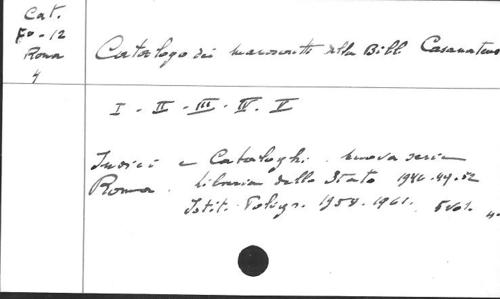 Cat.
Fo - 12
Roma
4
Catalogo dei manoscritti della Bibl. Casanatense
I - II - III - IV - V
Indici e Cataloghi. nuova serie
Roma. Libreria dello Stato 1946.49.52
Istit. Poligr. 1954. 1961. 5 vol. 4°